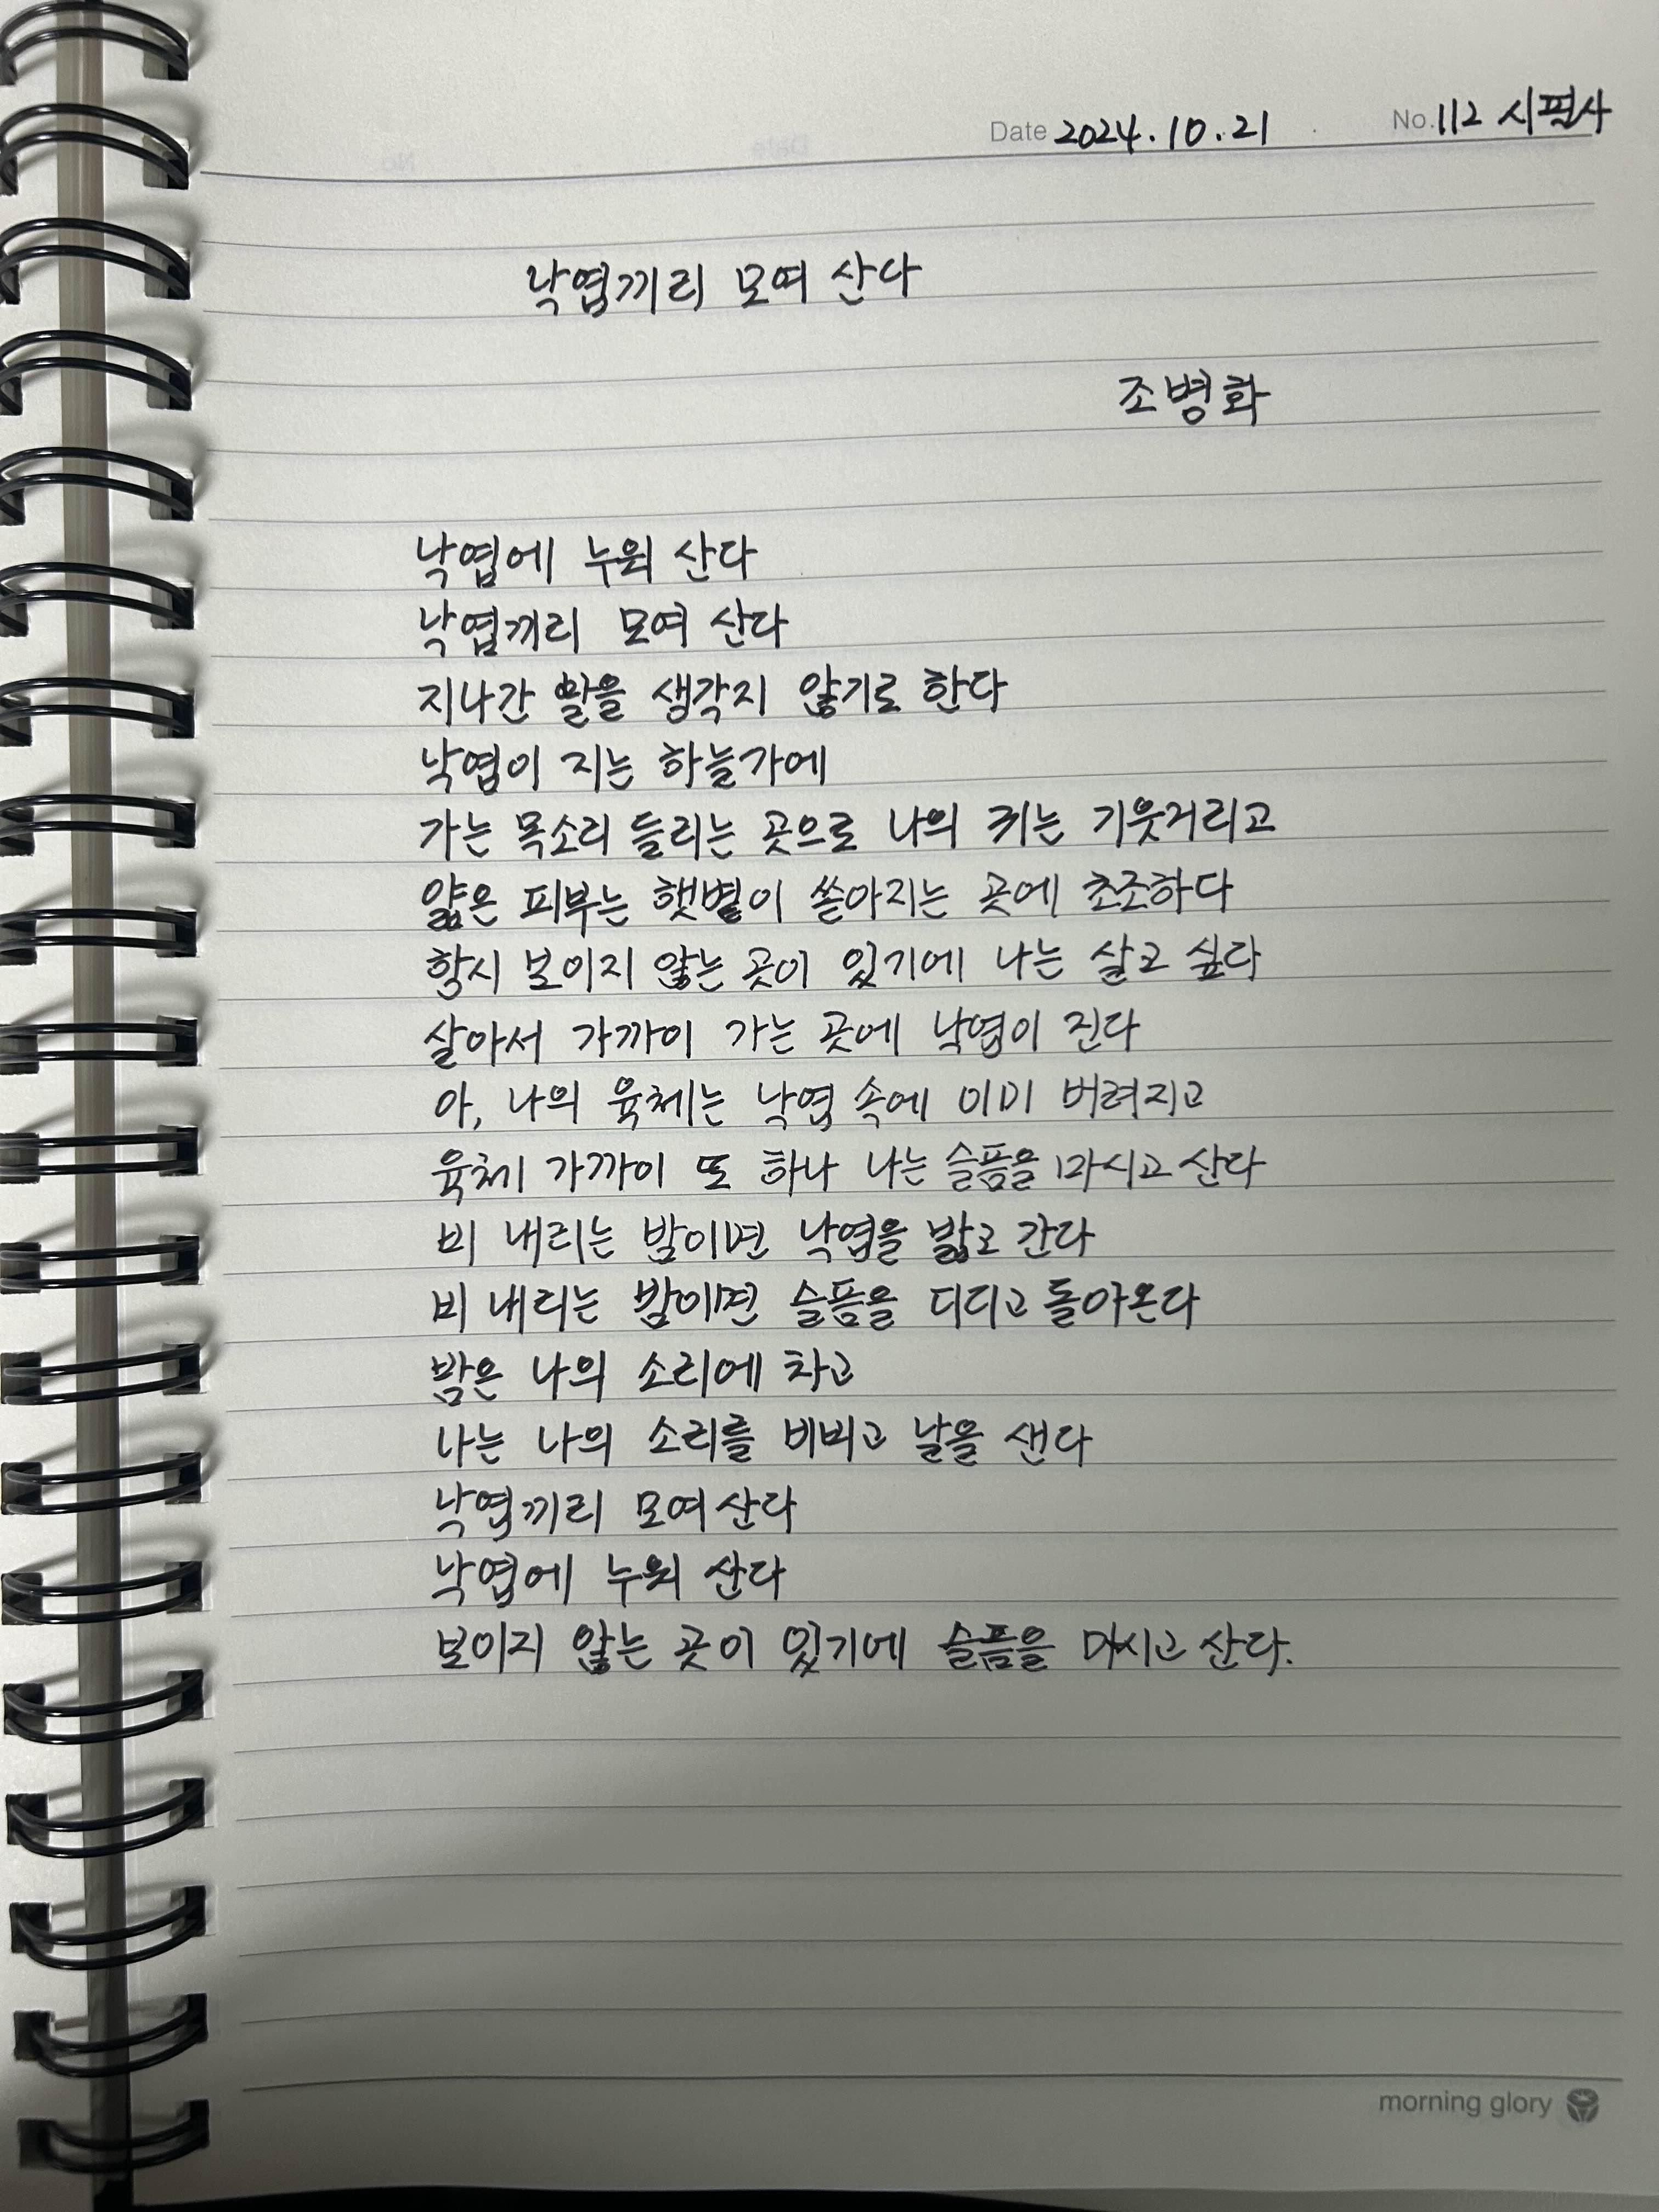 Date 2024.10.21 No.112 시필사
낙엽끼리 모여 산다
조병화
낙엽에 누워 산다
낙엽끼리 모여 산다
지나간 날을 생각지 않기로 한다
낙엽이 지는 하늘가에
가는 목소리 들리는 곳으로 나의 귀는 기웃거리고
얇은 피부는 햇볕이 쏟아지는 곳에 초조하다
항시 보이지 않는 곳이 있기에 나는 살고 싶다
살아서 가까이 가는 곳에 낙엽이 진다
아, 나의 육체는 낙엽 속에 이미 버려지고
육체 가까이 또 하나 나는 슬픔을 마시고 산다
비 내리는 밤이면 낙엽을 밟고 간다
비 내리는 밤이면 슬픔을 디디고 돌아온다
밤은 나의 소리에 차고
나는 나의 소리를 비비고 날을 샌다
낙엽끼리 모여 산다
낙엽에 누워 산다
보이지 않는 곳이 있기에 슬픔을 마시고 산다.
morning glory